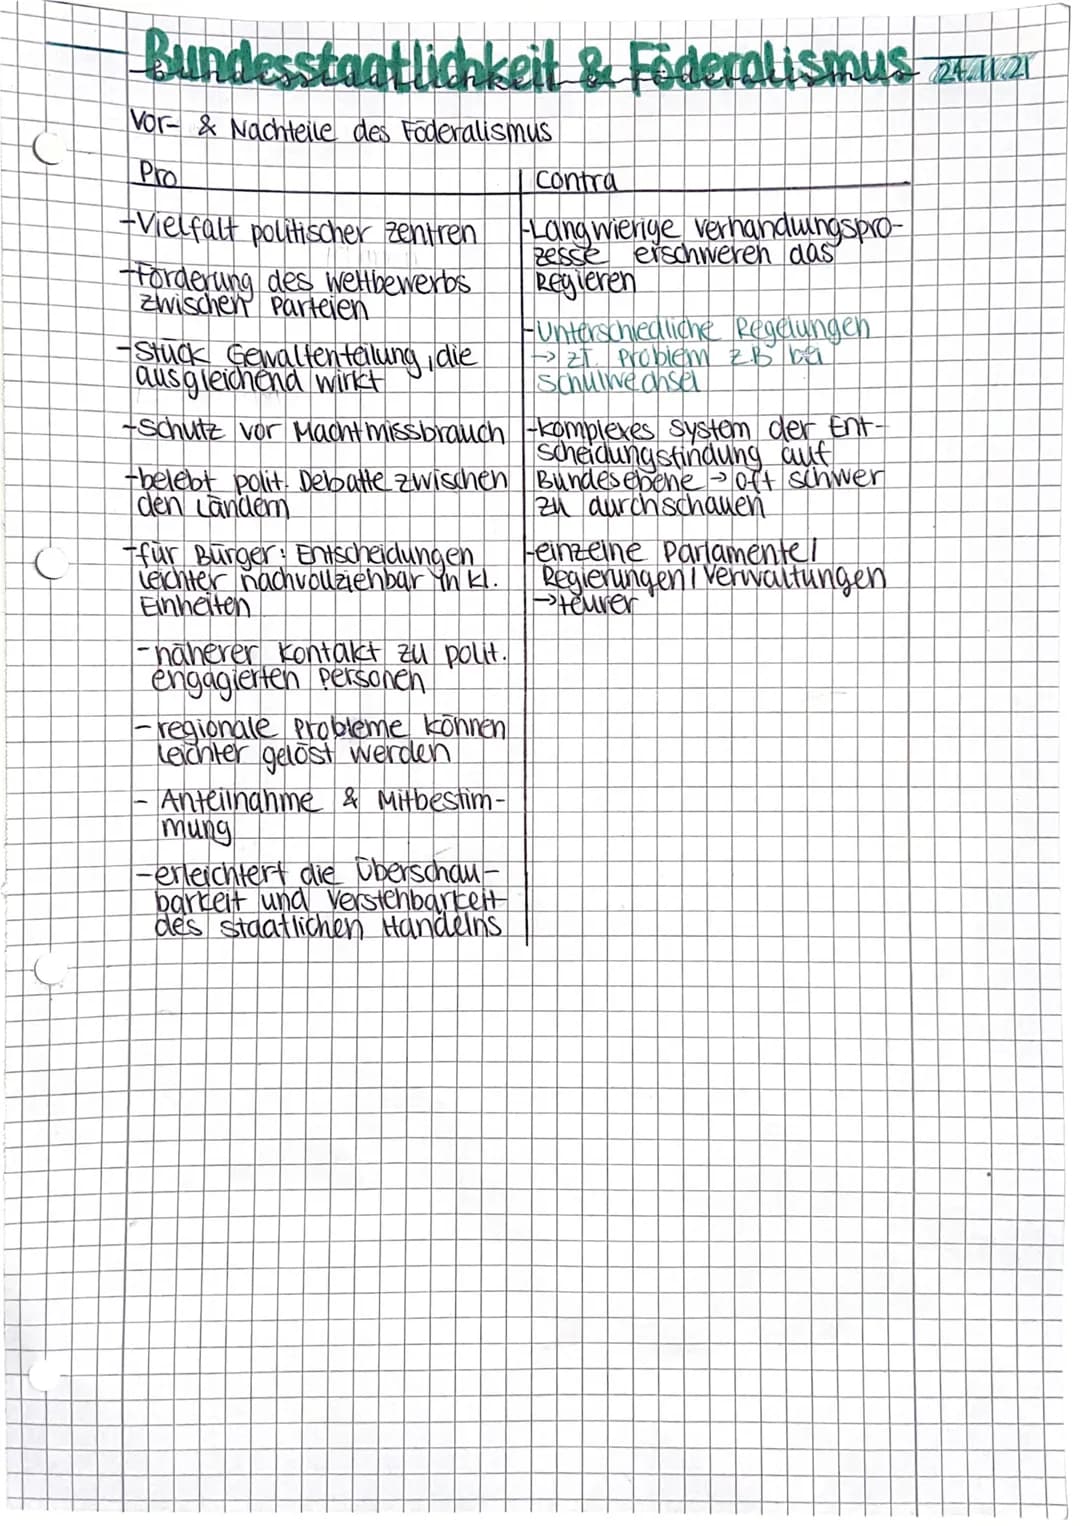 Bundesstaatlichkeit & Föderalismus 24.11.21
Vor- & Nachteile des Föderalismus
Pro
-Vielfalt politischer Zentren
-Förderung des Wettbewerbs
zwischen Parteien
-Stück Gewaltenteilung, die
ausgleichend wirkt
-Schutz vor Machtmissbrauch
-belebt polit. Debatte zwischen
den Ländern
-für Bürger: Entscheidungen
leichter nachvollziehbar in kl.
Einheiten
-näherer Kontakt zu polit.
engagierten Personen
-regionale Probleme können
leichter gelöst werden
- Anteilnahme & Mitbestim-
mung
-erleichtert die Überschau-
barkeit und Verstehbarkeit
des staatlichen Handelns
Contra
-Langwierige Verhandlungspro-
zesse erschweren das
Regieren
-Unterschiedliche Regelungen
→ zT. Problem z.B bei
Schulwechsel
-komplexes System der Ent-
scheidungsfindung auf
Bundesebene → oft schwer
zu durchschauen
-einzelne Parlamente/
Regierungen/Verwaltungen
→teurer